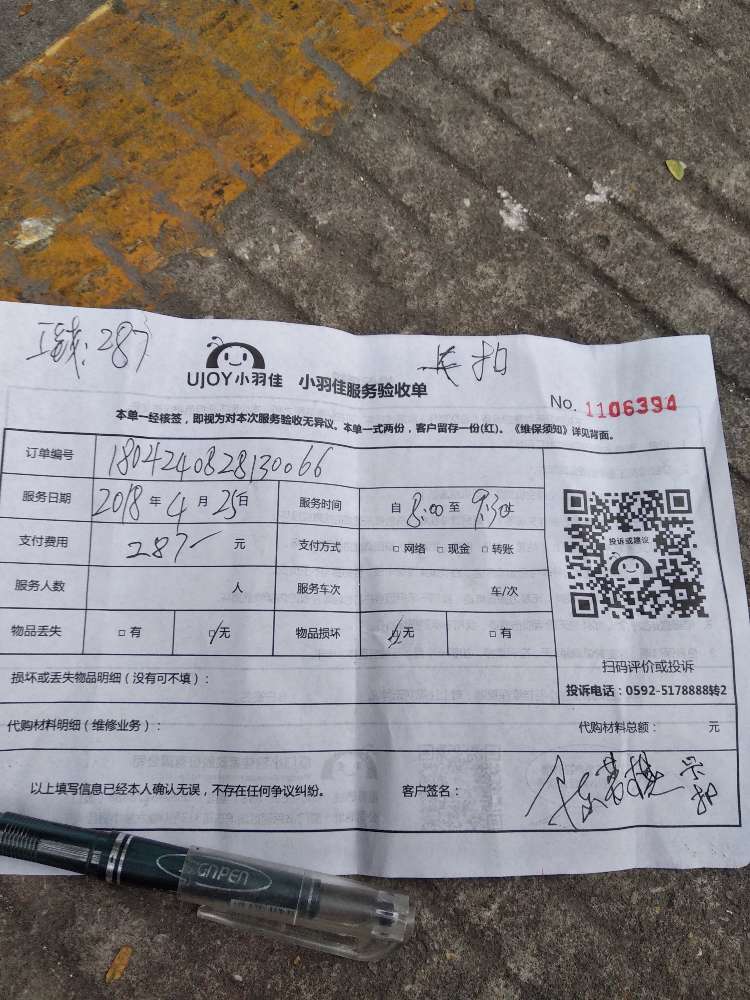 工钱:287
卡扣
UJOY小羽佳 小羽佳服务验收单
No. 1106394
本单一经核签，即视为对本次服务验收无异议。本单一式两份，客户留存一份(红)。《维保须知》详见背面。
订单编号 1804240828130066
服务日期 2018年4月25日 服务时间 自8:00至9:30止
支付费用 287 元 支付方式 □网络 □现金 □转账
服务人数 人 服务车次 车/次
物品丢失 □有 □无 物品损坏 □无 □有
投诉或建议
扫码评价或投诉
投诉电话：0592-5178888转2
损坏或丢失物品明细（没有可不填）：
代购材料明细（维修业务）： 代购材料总额： 元
以上填写信息已经本人确认无误，不存在任何争议纠纷。 客户签名：
GNPEN